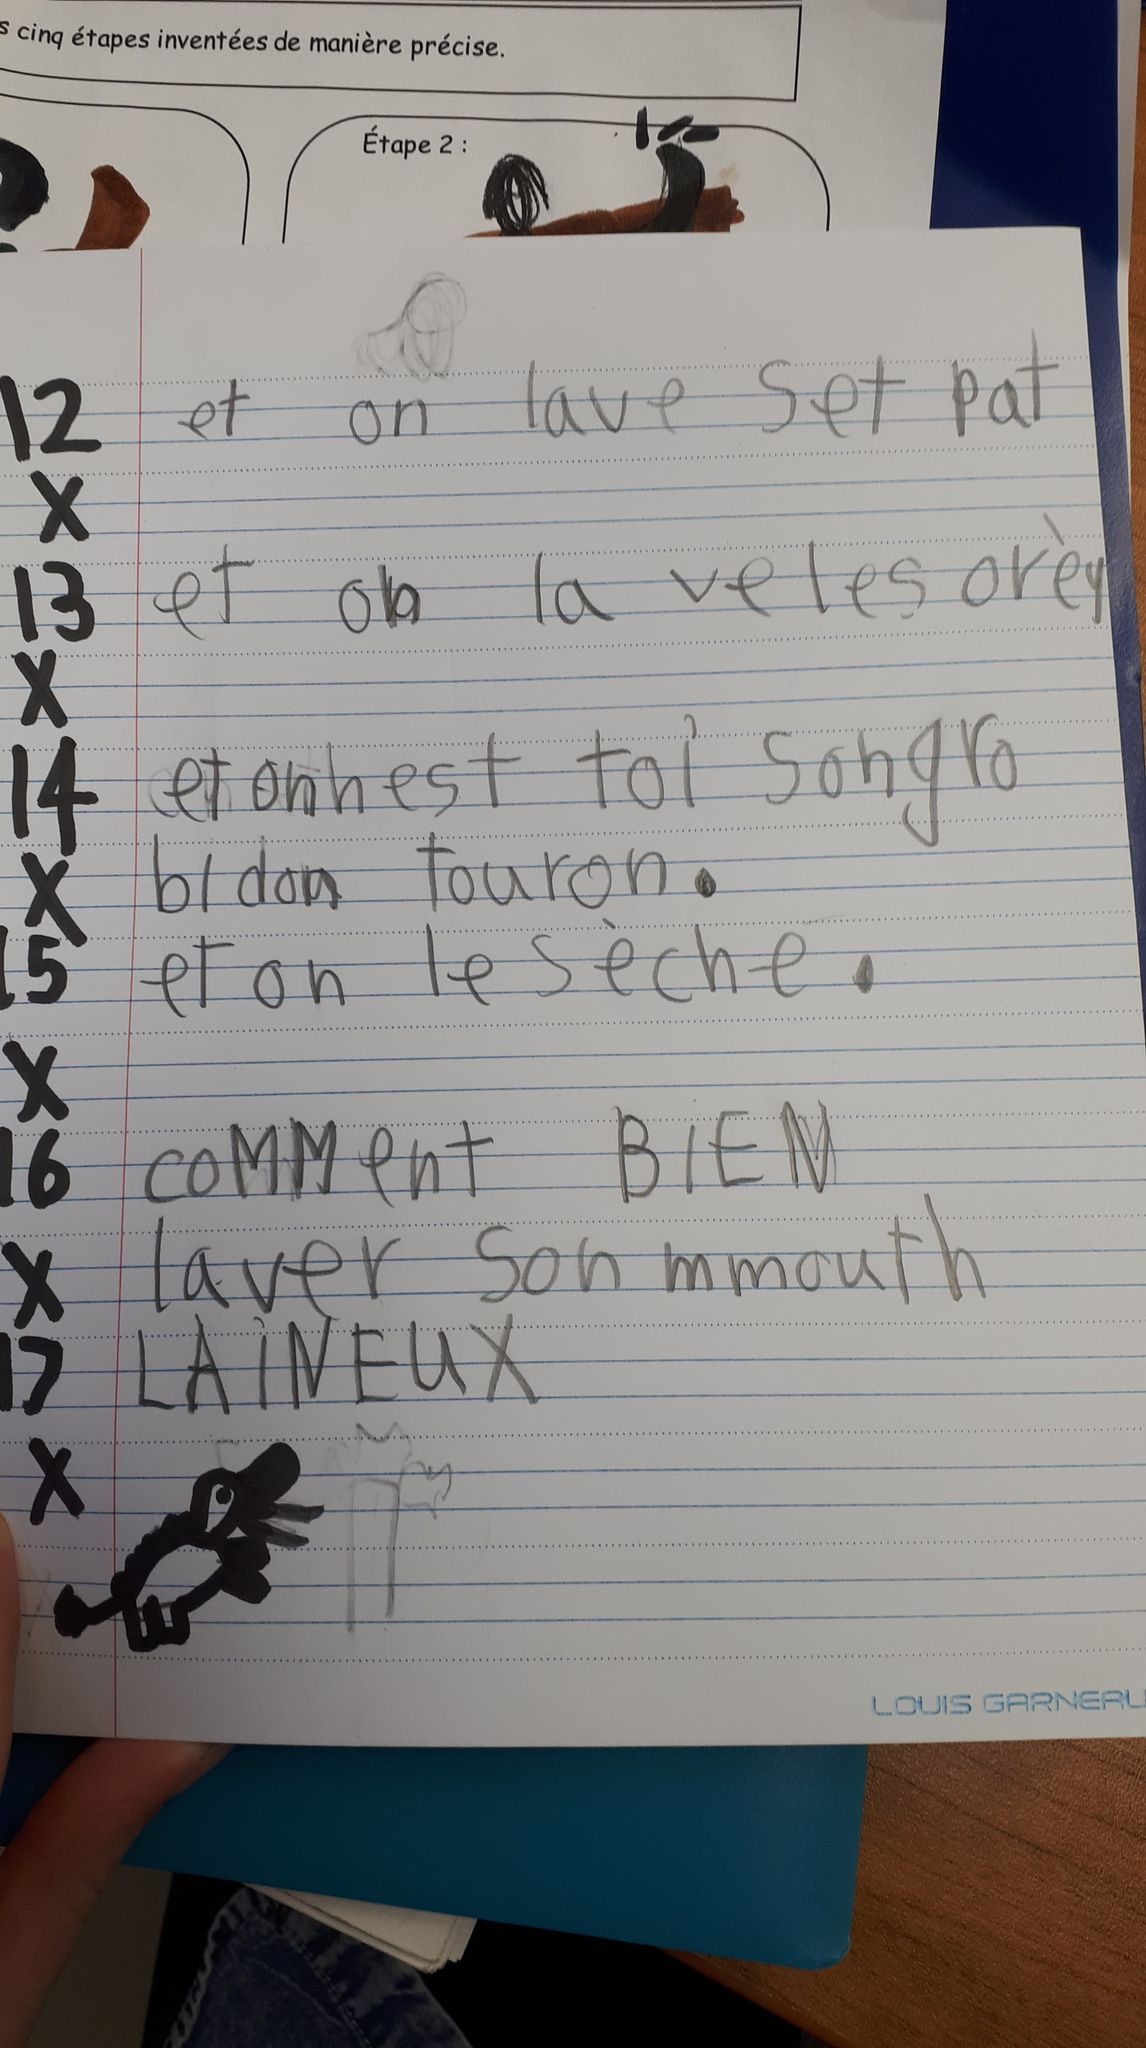 s cinq étapes inventées de manière précise.
Étape 2 :
12 et on lave set pat
X
13 et on la ve les orèy
X
14 et onnest toi songro
X bidon touron.
15 et on le sèche.
X
16 coMMent BIEN
X laver son mmouth
17 LAiNEUX
X
LOUIS GARNEAU